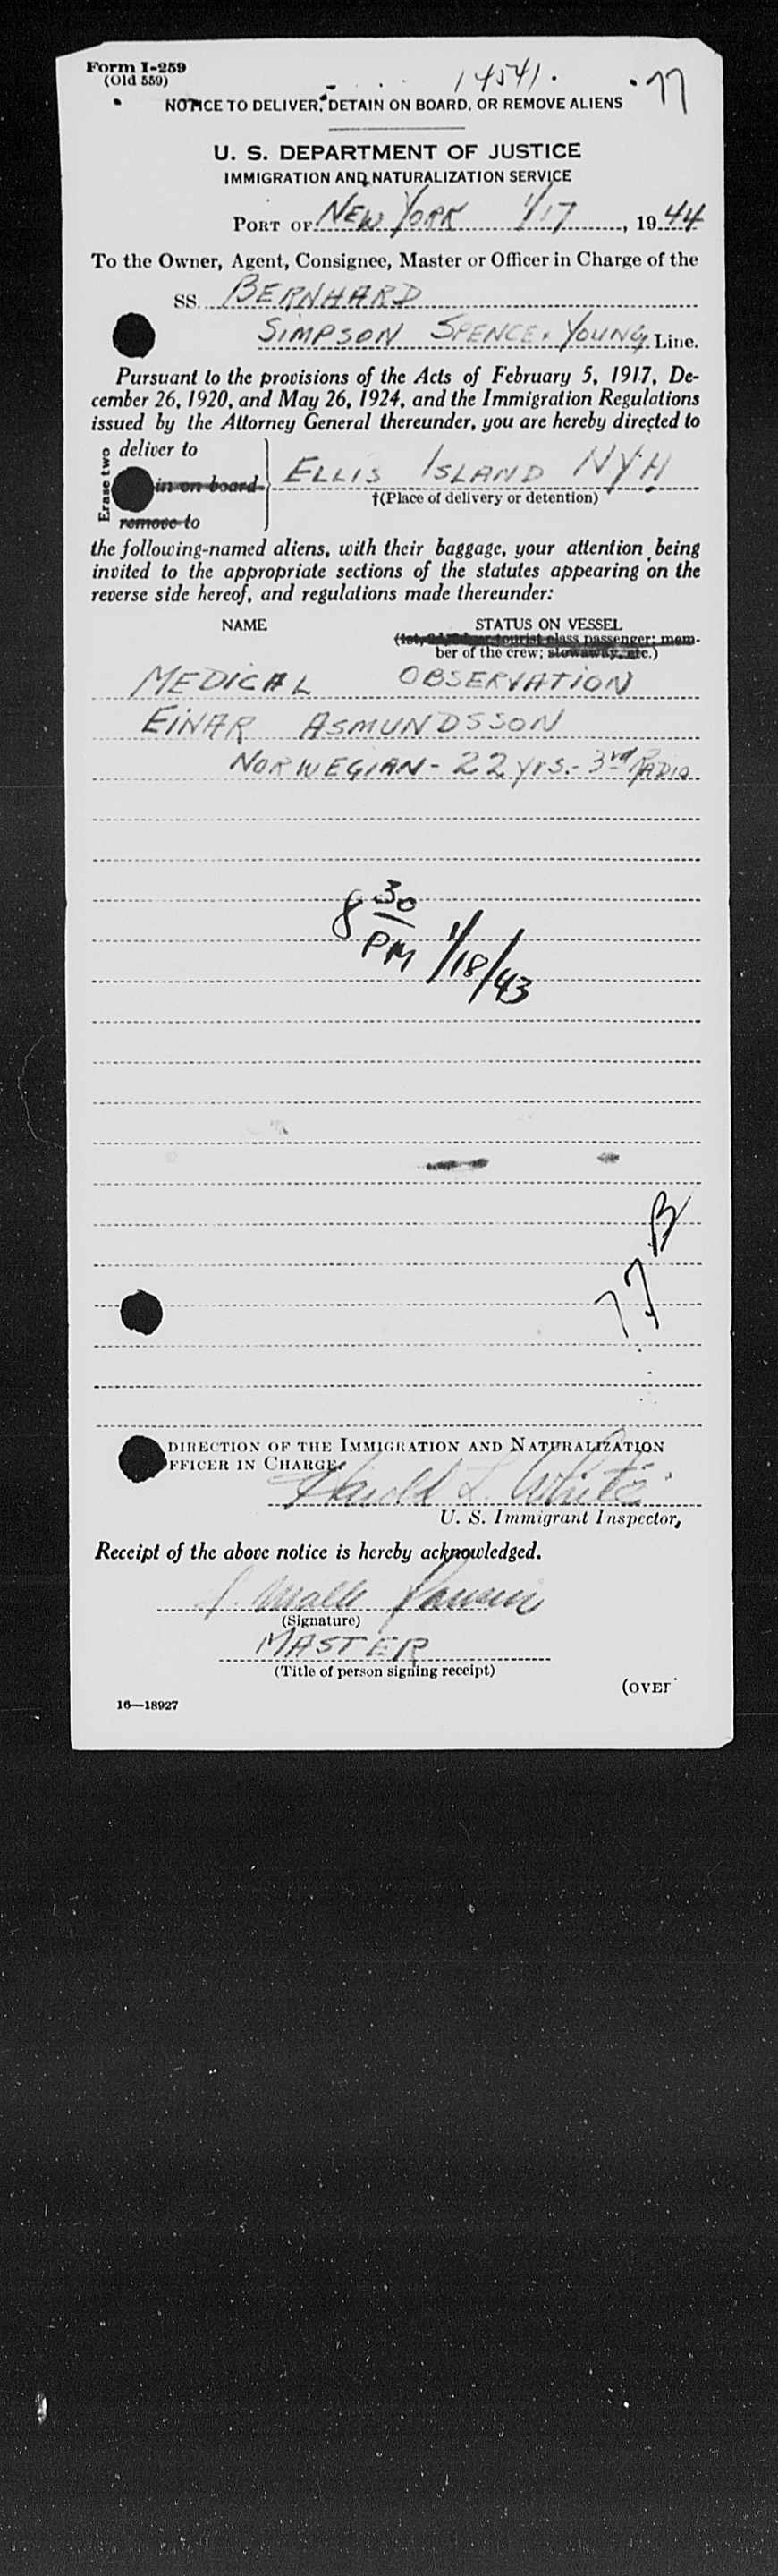 Form I-259
(Old 559)
14541.
77
NOTICE TO DELIVER, DETAIN ON BOARD, OR REMOVE ALIENS
U. S. DEPARTMENT OF JUSTICE
IMMIGRATION AND NATURALIZATION SERVICE
PORT OF NEW YORK 1/17, 1944
To the Owner, Agent, Consignee, Master or Officer in Charge of the
SS BERNHARD
SIMPSON SPENCE & YOUNG Line.
Pursuant to the provisions of the Acts of February 5, 1917, De-
cember 26, 1920, and May 26, 1924, and the Immigration Regulations
issued by the Attorney General thereunder, you are hereby directed to
Erase two
deliver to
in on board
ELLIS ISLAND NYH
†(Place of delivery or detention)
remove to
the following-named aliens, with their baggage, your attention being
invited to the appropriate sections of the statutes appearing on the
reverse side hereof, and regulations made thereunder:
NAME STATUS ON VESSEL
(1st, tourist class passenger; mem-
ber of the crew; stowaway, etc.)
MEDICAL OBSERVATION
EINAR ASMUNDSSON
NORWEGIAN - 22 yrs. - 3rd RADIO
8 30 PM 1/18/43
B
77
DIRECTION OF THE IMMIGRATION AND NATURALIZATION
FFICER IN CHARGE.
Harold L. White
U. S. Immigrant Inspector,
Receipt of the above notice is hereby acknowledged.
(Signature)
MASTER
(Title of person signing receipt)
(OVER
16—18927